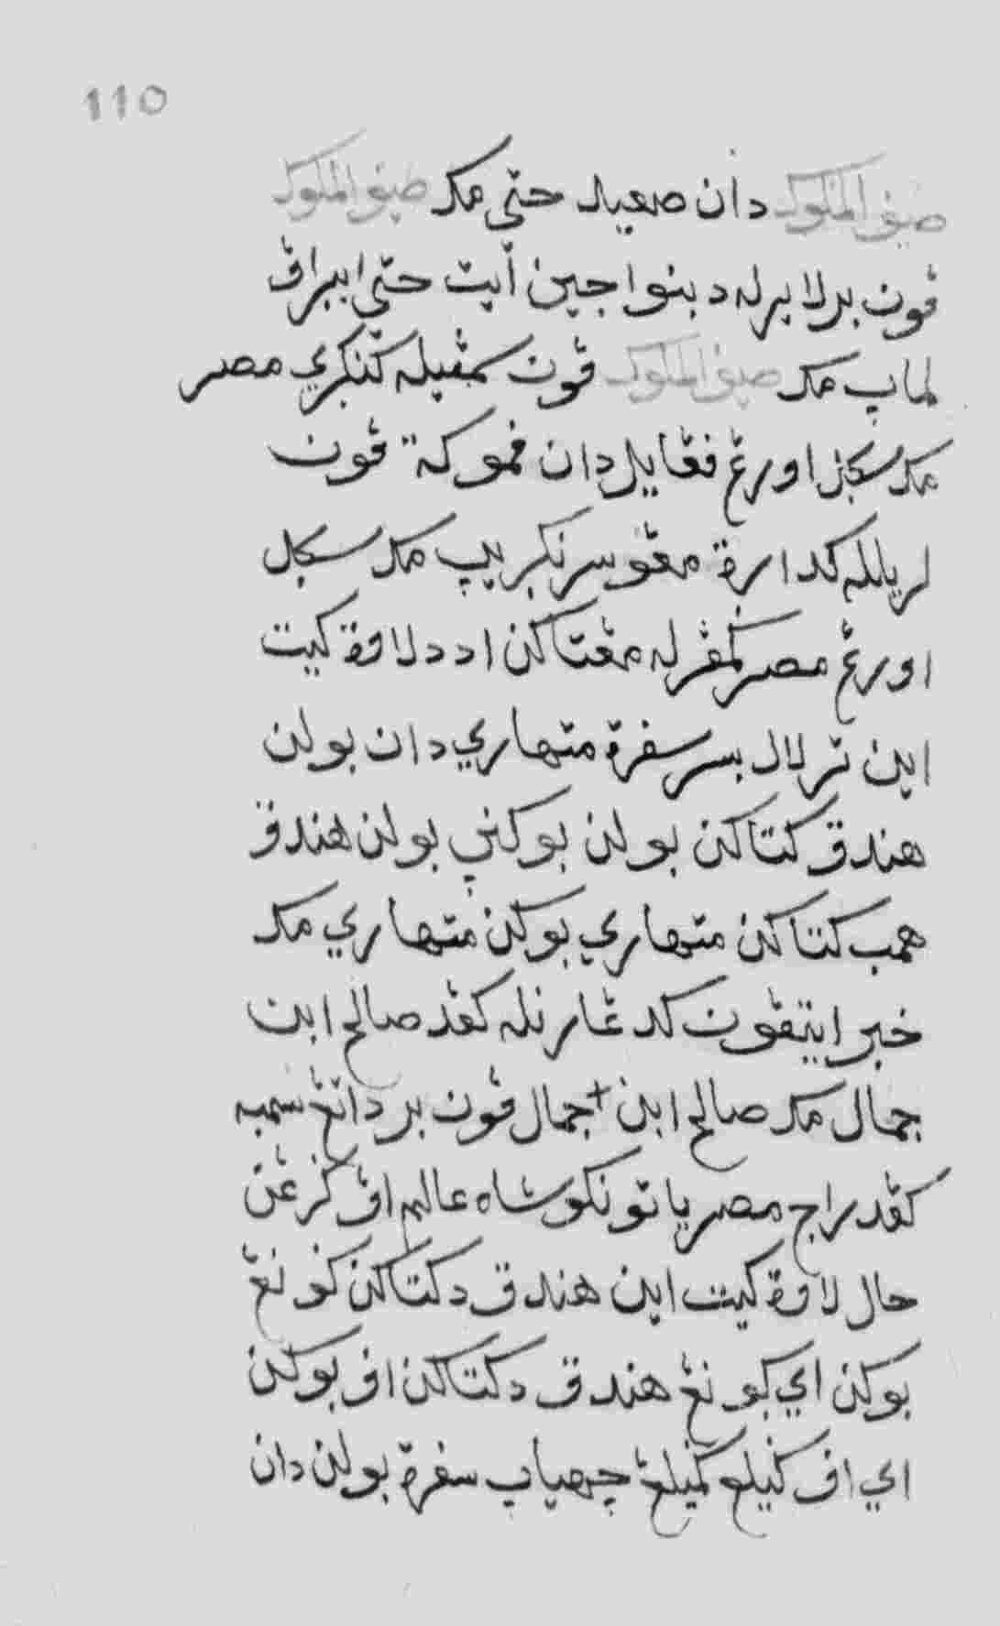 110
صيف الملوك دان صعيد حتى مک صيف الملوك
ڤون برلايرله دبنوا جين ايت حتى ابراڤ
لماڽ مک صيف الملوك ڤون سمڤيله کنکري مصر
مک سکلن اورڠ ڤڠايل دان فموکة ڤون
لريله کدارة مڠوسر نکريڽ مک سکل
اورڠ مصر کمڤرله مڠتاکن اد دلاوة کيت
اين ترلال بسر سفرة متهاري دان بولن
هندق کتاکن بولن بوکنڽ بولن هندق
همب کتاکن متهاري بوکن متهاري مک
خبر ايتڤون کدڠارنله کڤد صالح ابن
جمال مک صالح ابن جمال ڤون برداتڠ سمبه
کڤد راج مصر يا توانکو شاه عالم اڤ کرڠن
حال لاوة کيت اين هندق دکتاکن کونڠ
بوکن اي کونڠ هندق دکتاکن اڤ بوکن
اي اڤ کيلڠ کميلڠ چهياڽ سفرة بولن دان